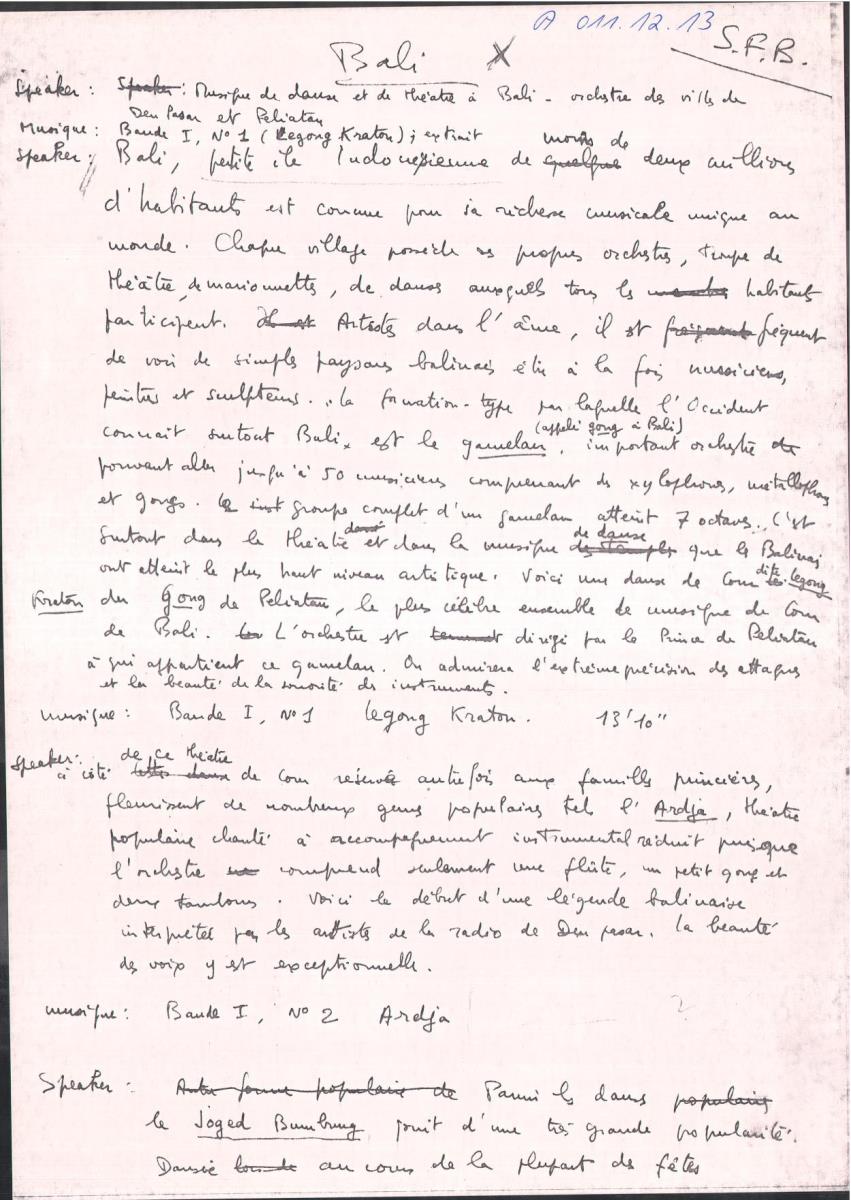 A 011.12.13
S.F.B.
Bali X
Speaker : Speaker : Musique de danse et de théâtre à Bali - orchestre des villes de
Den Pasar et Peliatan
Musique : Bande I, N° 1 (Legong Kraton) ; extrait
moins de
Speaker : Bali, petite île Indonésienne de quelque deux millions
d'habitants est connue pour sa richesse musicale unique au
monde. Chaque village possède ses propres orchestres, troupe de
théâtre, de marionnettes, de danses auxquels tous les habitants
participent. Il est Artistes dans l'âme, il est fréquent fréquent
de voir de simples paysans balinais être à la fois musiciens,
peintres et sculpteurs. La formation-type par laquelle l'Occident
(appelé gong à Bali)
connait surtout Bali, est le gamelan, important orchestre de
pouvant aller jusqu'à 50 musiciens comprenant des xylophones, métallophones
et gongs. Le inst groupe complet d'un gamelan atteint 7 octaves. C'est
dansé de danse
surtout dans le théâtre et dans la musique des temples que les Balinais
dite legong
ont atteint le plus haut niveau artistique. Voici une danse de Cour
Kraton du Gong de Peliatan, le plus célèbre ensemble de musique de Cour
de Bali. L'orchestre est dirigé par le Prince de Peliatan
à qui appartient ce gamelan. On admirera l'extrême précision des attaques
et la beauté de la sonorité des instruments.
musique : Bande I, N° 1 Legong Kraton. 13'10"
Speaker : de ce théâtre
à côté cette danse de Cour réservé autrefois aux familles princières,
fleurissent de nombreux genres populaires tels l'Ardja, théâtre
populaire chanté à accompagnement instrumental réduit puisque
l'orchestre comprend seulement une flûte, un petit gong et
deux tambours. Voici le début d'une légende balinaise
interprétée par les artistes de la radio de Den pasar. La beauté
des voix y est exceptionnelle.
musique : Bande I, N° 2 Ardja
?
Speaker : Autre forme populaire de Parmi les danses populaires
le Joged Bumbung jouit d'une très grande popularité.
Dansée au cours de la plupart des fêtes